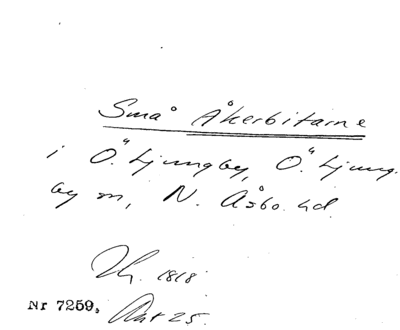 Små Åkerbitarne
i Ö. Ljungby, Ö. Ljung-
by sn, N. Åsbo hd.
1818
Nr 7259, Akt 25.